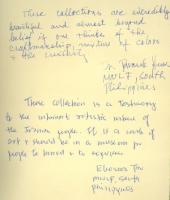 These collections are incredibly
beautiful and almost beyond
belief if one thinks of the
craftsmanship, mixture of colors
& the creativity
MVLF, South
Philippines
These collection is a testimony
to the inherent artistic nature of
the people. It is a work of
art & should be in a museum for
people to
MVLF, South
Philippines